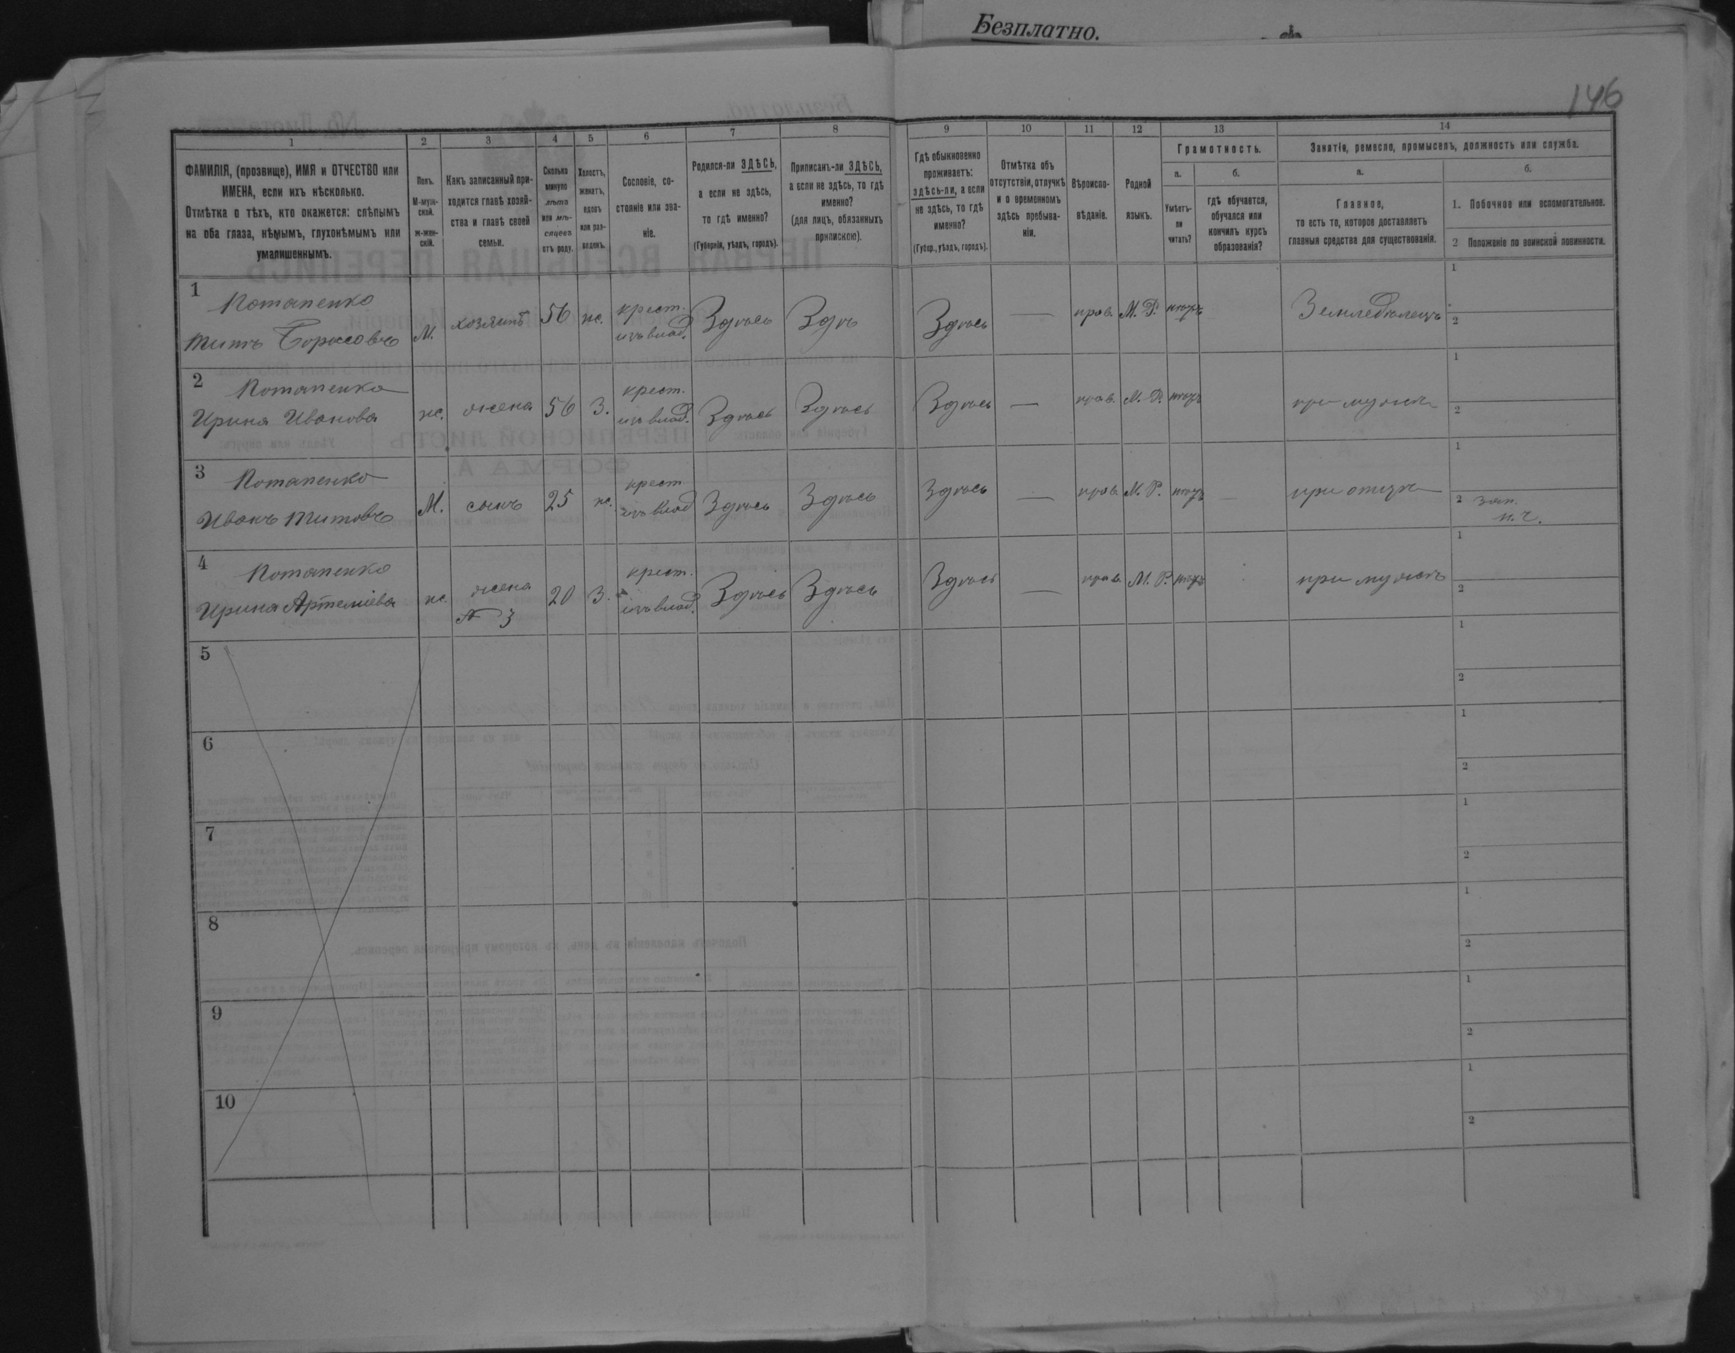 Безплатно.
146
1 2 3 4 5 6 7 8 9 10 11 12 13 14
ФАМИЛІЯ, (прозвище), ИМЯ и ОТЧЕСТВО или
ИМЕНА, если ихъ нѣсколько.
Отмѣтка о тѣхъ, кто окажется: слѣпымъ
на оба глаза, нѣмымъ, глухонѣмымъ или
умалишеннымъ.
Полъ.
М-муж-
ской.
ж-жен-
скій.
Какъ записанный при-
ходится главѣ хозяй-
ства и главѣ своей
семьи.
Сколько
минуло
лѣтъ
или мѣ-
сяцевъ
отъ роду.
Холостъ,
женатъ,
вдовъ
или раз-
веденъ.
Сословіе, со-
стояніе или зва-
ніе.
Родился-ли ЗДѢСЬ,
а если не здѣсь,
то гдѣ именно?
(Губернія, уѣздъ, городъ).
Приписанъ-ли ЗДѢСЬ,
а если не здѣсь, то гдѣ
именно?
(для лицъ, обязанныхъ
припискою).
Гдѣ обыкновенно
проживаетъ:
здѣсь-ли, а если
не здѣсь, то гдѣ
именно?
(Губер., уѣздъ, городъ).
Отмѣтка объ
отсутствіи, отлучкѣ
и о временномъ
здѣсь пребыва-
ніи.
Вѣроиспо-
вѣданіе.
Родной
языкъ.
Грамотность.
а.
Умѣетъ-
ли
читать?
б.
гдѣ обучается,
обучался или
кончилъ курсъ
образованія?
Занятіе, ремесло, промыселъ, должность или служба.
а.
Главное,
то есть то, которое доставляетъ
главныя средства для существованія.
б.
1. Побочное или вспомогательное.
2 Положеніе по воинской повинности.
1 Потапенко
Титъ Борисовъ М. хозяинъ 56 ж. крест. изъ влад. Здѣсь Здѣсь Здѣсь — прав. М. Р. нѣтъ Земледѣлецъ 1 2
2 Потапенко
Ирина Иванова ж. жена 56 З. крест. изъ влад. Здѣсь Здѣсь Здѣсь — прав. М. Р. нѣтъ при мужѣ 1 2
3 Потапенко
Иванъ Титовъ М. сынъ 25 ж. крест. изъ влад. Здѣсь Здѣсь Здѣсь — прав. М. Р. нѣтъ — при отцѣ 1 2
4 Потапенко
Ирина Артеміева ж. жена № 3 20 З. крест. изъ влад. Здѣсь Здѣсь Здѣсь — прав. М. Р. нѣтъ при мужѣ 1 2
5 1 2
6 1 2
7 1 2
8 1 2
9 1 2
10 1 2